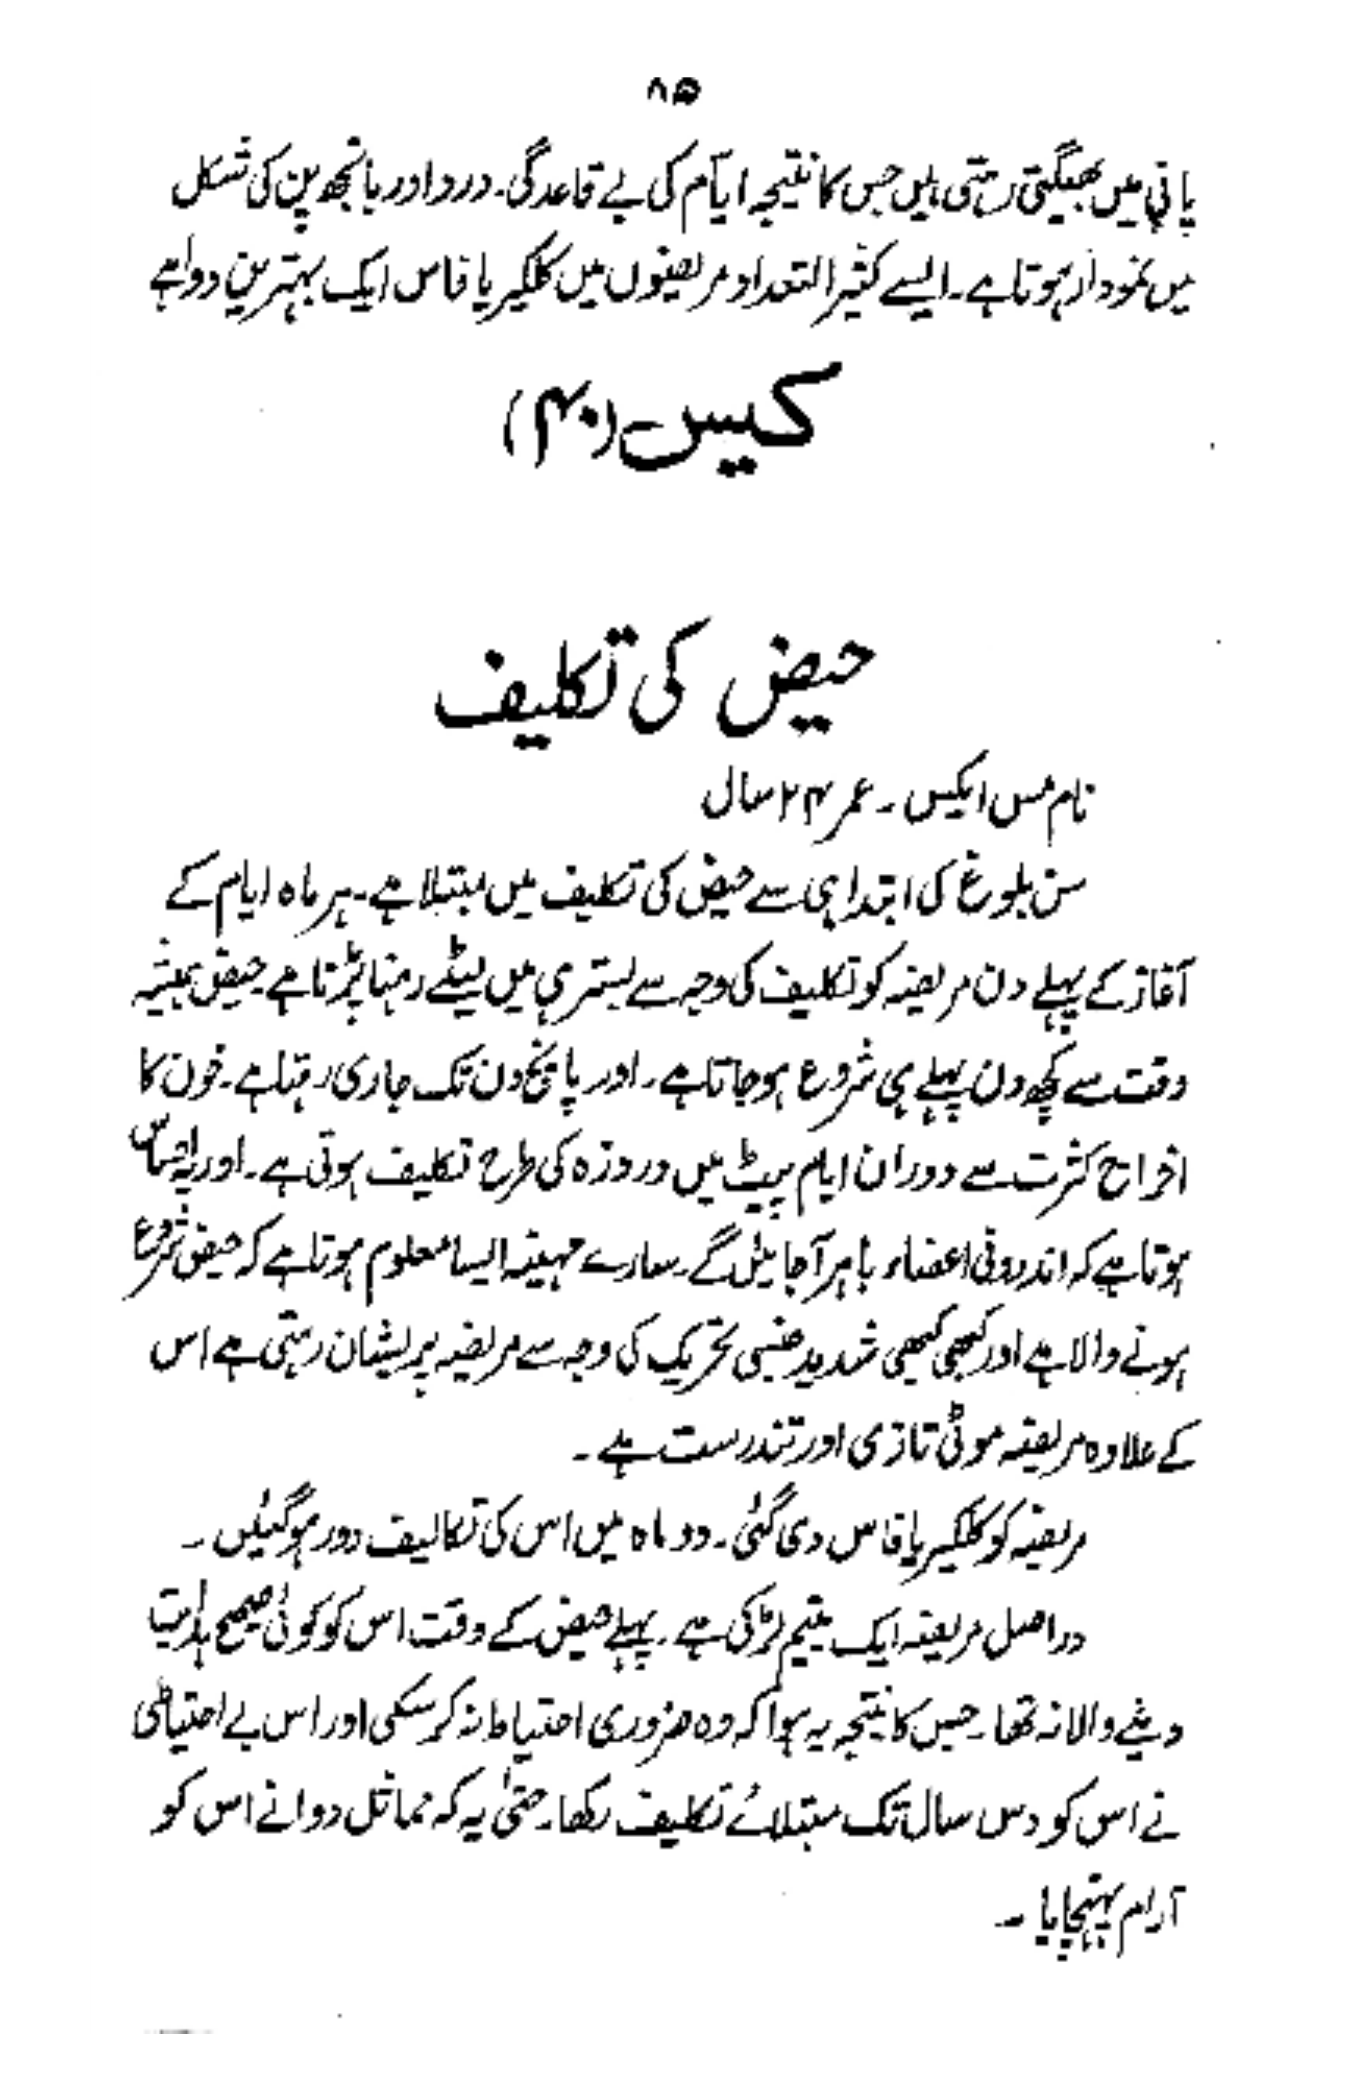 ۸۵
پانی میں بھیگتی رہتی ہیں جس کا نتیجہ ایام کی بے قاعدگی۔ درد اور بانجھ پن کی شکل
میں نمودار ہوتا ہے۔ ایسے کثیر التعداد مریضوں میں کلکیریا فاس ایک بہترین دوا ہے
کیس (۴۰)
حیض کی تکلیف
نام مس ایکس ۔ عمر ۲۴ سال
سن بلوغ کی ابتدا ہی سے حیض کی تکلیف میں مبتلا ہے۔ ہر ماہ ایام کے
آغاز کے پہلے دن مریضہ کو تکلیف کی وجہ سے بستر ہی میں لیٹے رہنا پڑتا ہے حیض ہمیشہ
وقت سے کچھ دن پہلے ہی شروع ہو جاتا ہے۔ اور پانچ دن تک جاری رہتا ہے۔ خون کا
اخراج کثرت سے دوران ایام پیٹ میں دردزہ کی طرح تکلیف ہوتی ہے۔ اور یہ احساس
ہوتا ہے کہ اندرونی اعضاء باہر آجائیں گے۔ سارے مہینہ ایسا معلوم ہوتا ہے کہ حیض شروع
ہونے والا ہے اور کبھی کبھی شدید جنسی تحریک کی وجہ سے مریضہ پریشان رہتی ہے اس
کے علاوہ مریضہ موٹی تازی اور تندرست ہے ۔
مریضہ کو کلکیریا فاس دی گئی۔ دو ماہ میں اس کی تکالیف دور ہوگئیں ۔
دراصل مریضہ ایک یتیم لڑکی ہے۔ پہلے حیض کے وقت اس کو کوئی صحیح ہدایت
دینے والا نہ تھا۔ جس کا نتیجہ یہ ہوا کہ وہ ضروری احتیاط نہ کرسکی اور اس بے احتیاطی
نے اس کو دس سال تک مبتلائے تکلیف رکھا۔ حتیٰ یہ کہ مماثل دوا نے اس کو
آرام پہنچایا ۔